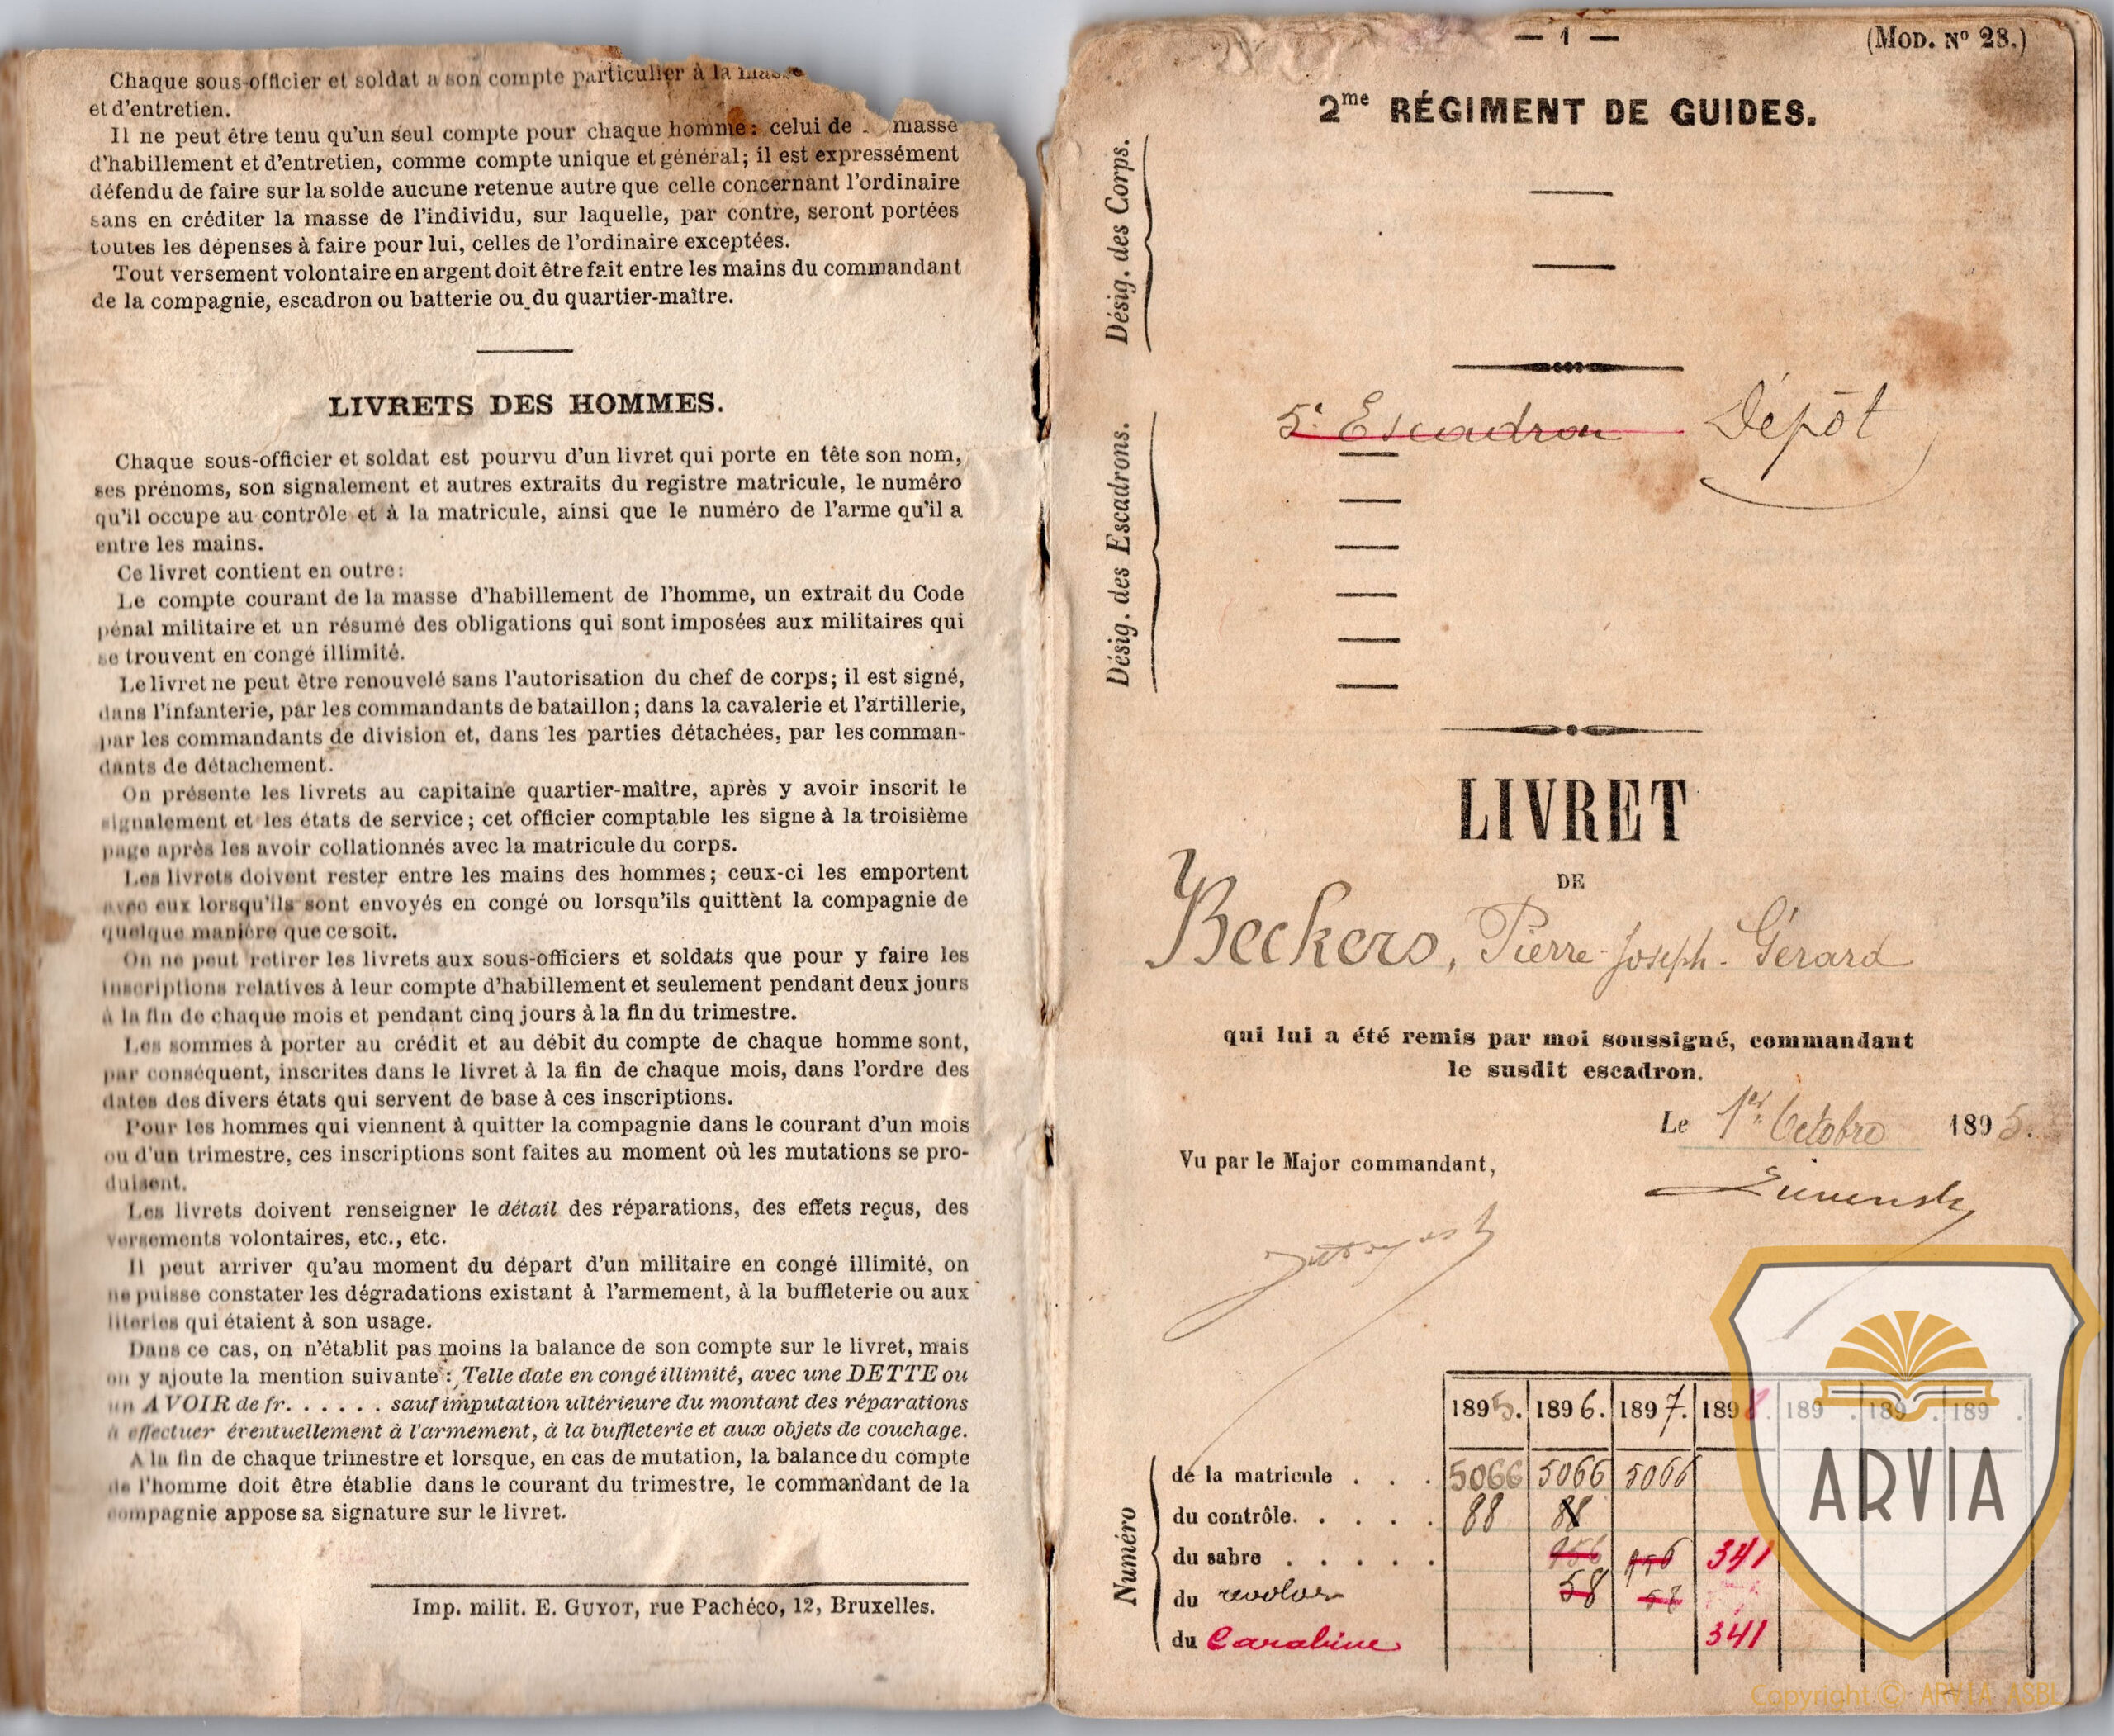 Chaque sous-officier et soldat a son compte particulier à la masse
et d'entretien.
Il ne peut être tenu qu'un seul compte pour chaque homme : celui de masse
d'habillement et d'entretien, comme compte unique et général; il est expressément
défendu de faire sur la solde aucune retenue autre que celle concernant l'ordinaire
sans en créditer la masse de l'individu, sur laquelle, par contre, seront portées
toutes les dépenses à faire pour lui, celles de l'ordinaire exceptées.
Tout versement volontaire en argent doit être fait entre les mains du commandant
de la compagnie, escadron ou batterie ou du quartier-maître.
LIVRETS DES HOMMES.
Chaque sous-officier et soldat est pourvu d'un livret qui porte en tête son nom,
ses prénoms, son signalement et autres extraits du registre matricule, le numéro
qu'il occupe au contrôle et à la matricule, ainsi que le numéro de l'arme qu'il a
entre les mains.
Ce livret contient en outre:
Le compte courant de la masse d'habillement de l'homme, un extrait du Code
pénal militaire et un résumé des obligations qui sont imposées aux militaires qui
se trouvent en congé illimité.
Le livret ne peut être renouvelé sans l'autorisation du chef de corps; il est signé,
dans l'infanterie, par les commandants de bataillon; dans la cavalerie et l'artillerie,
par les commandants de division et, dans les parties détachées, par les comman-
dants de détachement.
On présente les livrets au capitaine quartier-maître, après y avoir inscrit le
signalement et les états de service; cet officier comptable les signe à la troisième
page après les avoir collationnés avec la matricule du corps.
Les livrets doivent rester entre les mains des hommes; ceux-ci les emportent
avec eux lorsqu'ils sont envoyés en congé ou lorsqu'ils quittènt la compagnie de
quelque manière que ce soit.
On ne peut retirer les livrets aux sous-officiers et soldats que pour y faire les
inscriptions relatives à leur compte d'habillement et seulement pendant deux jours
à la fin de chaque mois et pendant cinq jours à la fin du trimestre.
Les sommes à porter au crédit et au débit du compte de chaque homme sont,
par conséquent, inscrites dans le livret à la fin de chaque mois, dans l'ordre des
dates des divers états qui servent de base à ces inscriptions.
Pour les hommes qui viennent à quitter la compagnie dans le courant d'un mois
ou d'un trimestre, ces inscriptions sont faites au moment où les mutations se pro-
duisent.
Les livrets doivent renseigner le détail des réparations, des effets reçus, des
versements volontaires, etc., etc.
Il peut arriver qu'au moment du départ d'un militaire en congé illimité, on
ne puisse constater les dégradations existant à l'armement, à la buffleterie ou aux
literies qui étaient à son usage.
Dans ce cas, on n'établit pas moins la balance de son compte sur le livret, mais
on y ajoute la mention suivante : Telle date en congé illimité, avec une DETTE ou
un AVOIR de fr. . . . . . sauf imputation ultérieure du montant des réparations
à effectuer éventuellement à l'armement, à la buffleterie et aux objets de couchage.
A la fin de chaque trimestre et lorsque, en cas de mutation, la balance du compte
de l'homme doit être établie dans le courant du trimestre, le commandant de la
compagnie appose sa signature sur le livret.
Imp. milit. E. GUYOT, rue Pachéco, 12, Bruxelles.
— 1 —
(MOD. Nº 28.)
2me RÉGIMENT DE GUIDES.
Désig. des Corps.
5e Escadron Dépôt
Désig. des Escadrons.
LIVRET
DE
Beckers, Pierre-Joseph-Gérard
qui lui a été remis par moi soussigné, commandant
le susdit escadron.
Le 1er Octobre 1895.
Vu par le Major commandant,
1895. 1896. 1897. 1898. 189 . 189 . 189 .
Numéro
de la matricule . . . 5066 5066 5066
du contrôle. . . . . 88 88
du sabre . . . . . 956 956 341
du revolver 58 58
du Carabine 341
ARVIA
Copyright © ARVIA ASBL